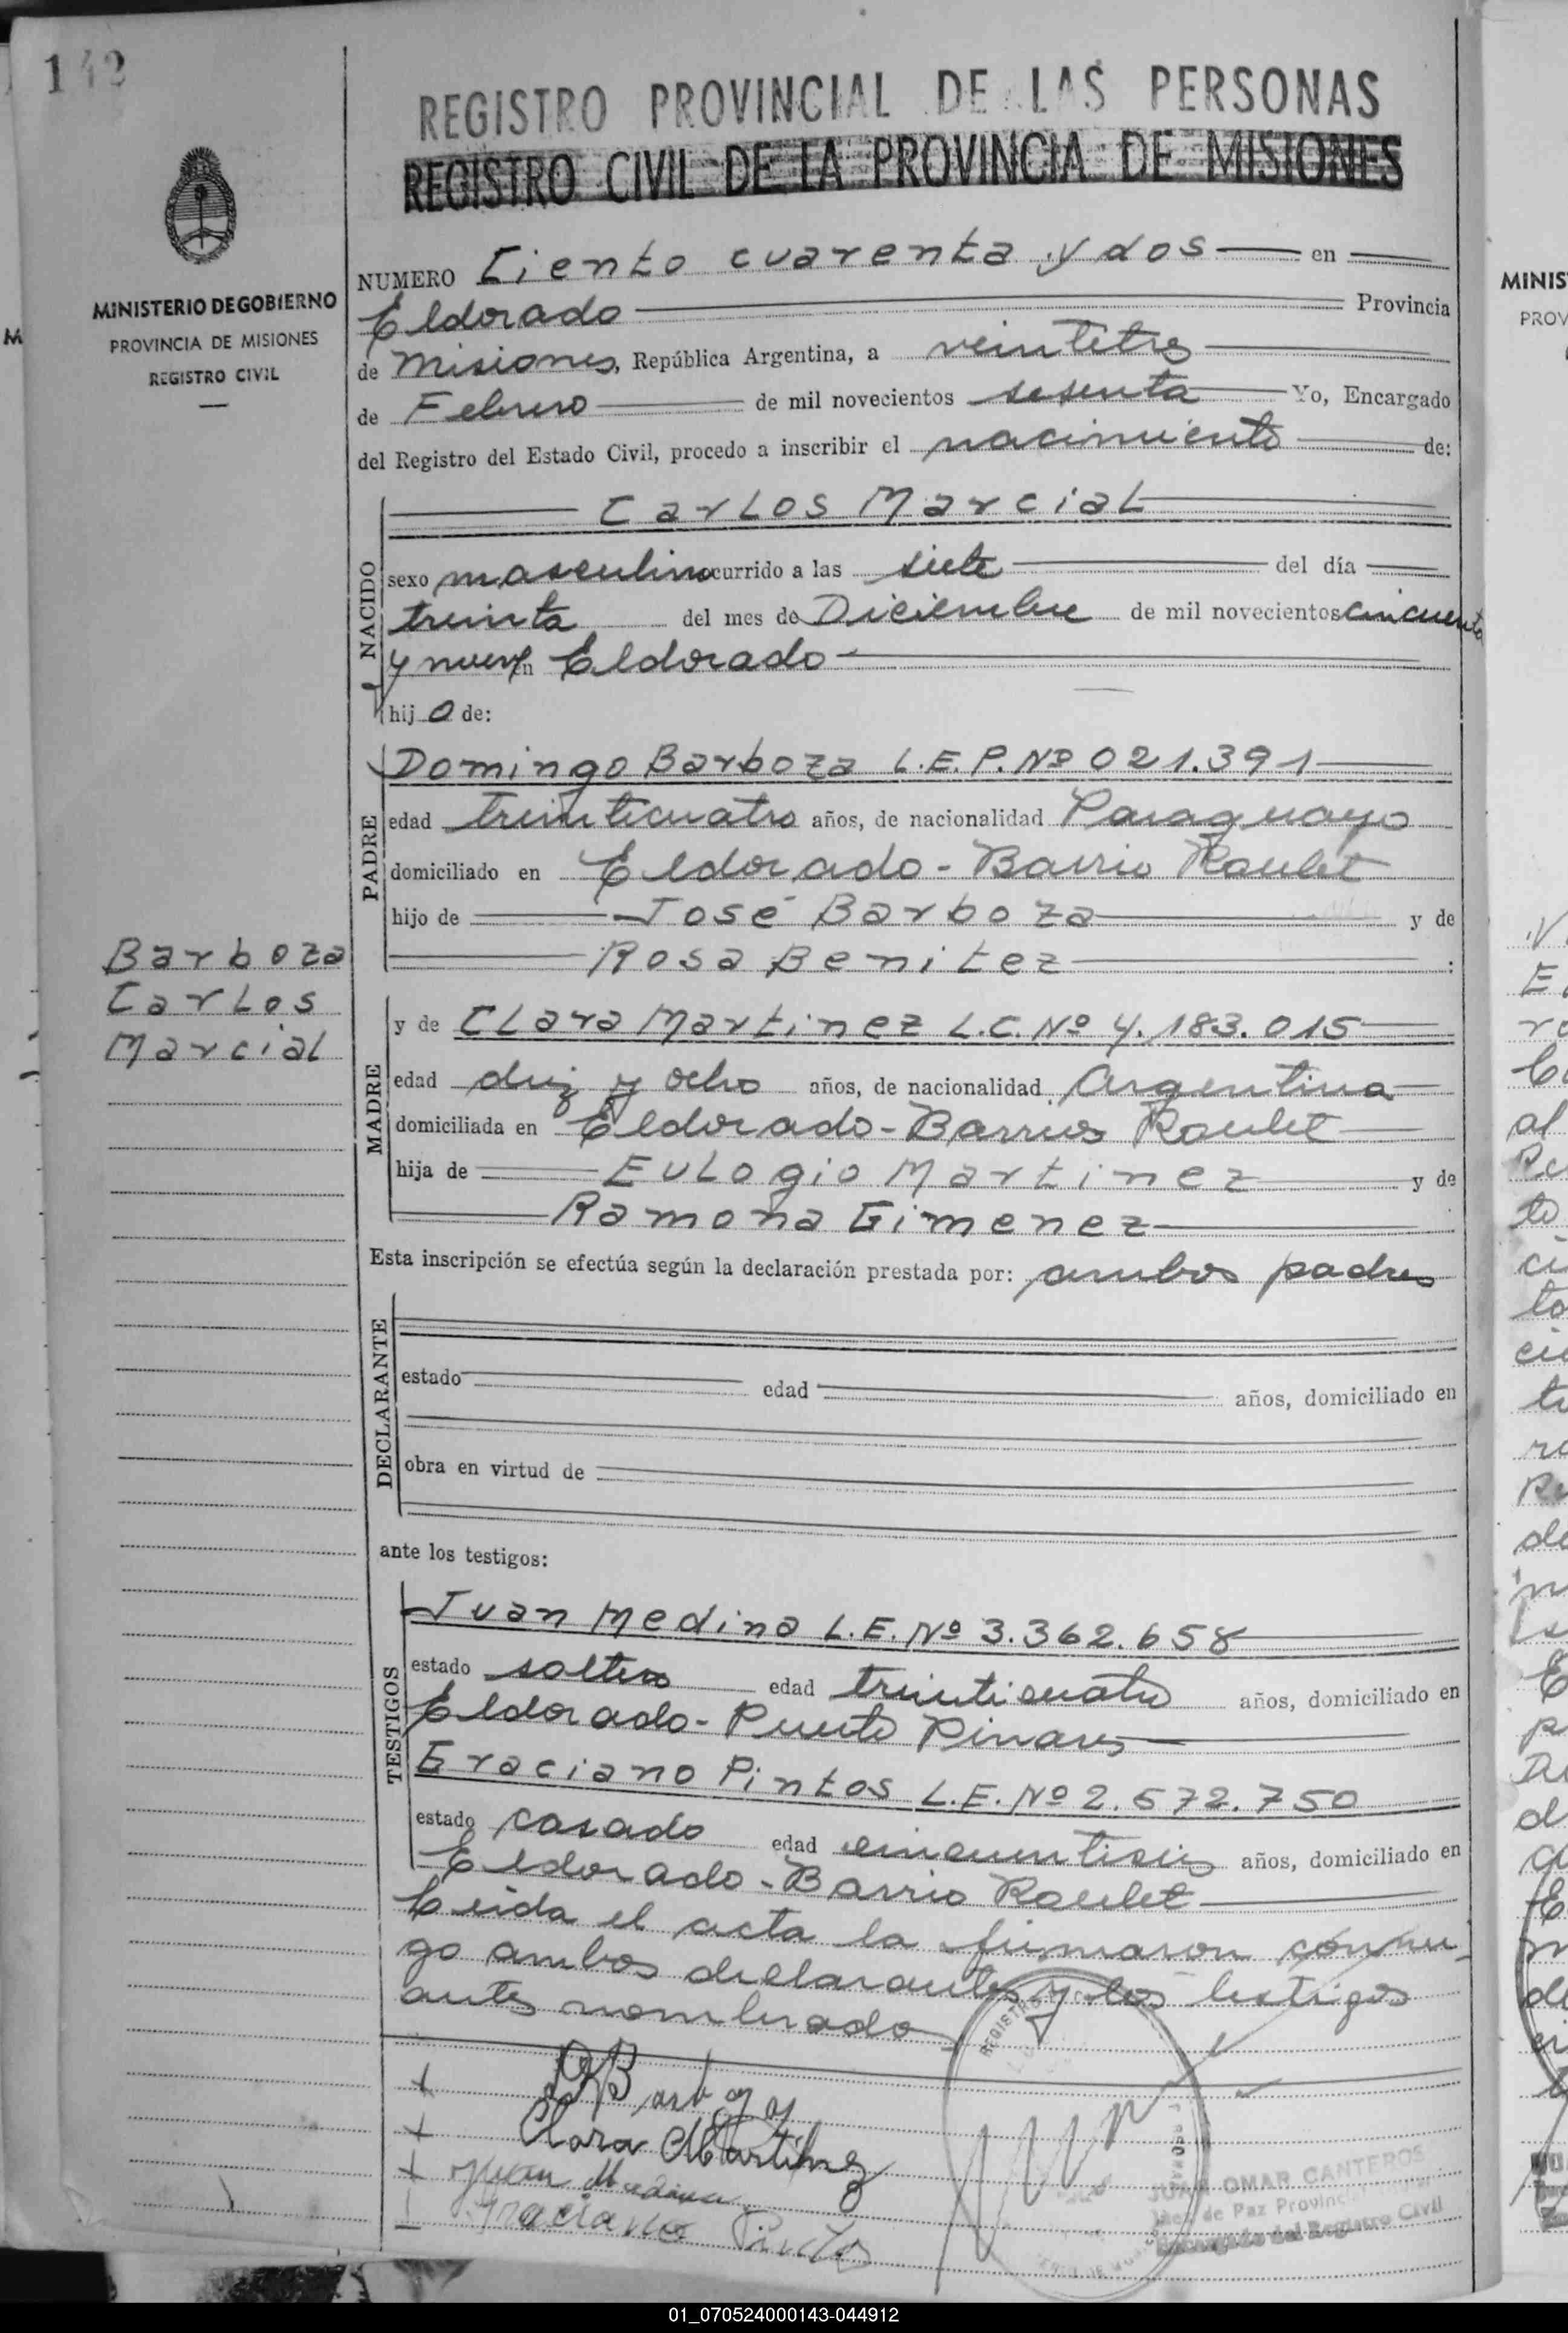 142
REGISTRO PROVINCIAL DE LAS PERSONAS
REGISTRO CIVIL DE LA PROVINCIA DE MISIONES
MINISTERIO DE GOBIERNO
PROVINCIA DE MISIONES
REGISTRO CIVIL
NUMERO Ciento cuarenta y dos en
Eldorado Provincia
de Misiones, República Argentina, a veintitres
de Febrero de mil novecientos sesenta Yo, Encargado
del Registro del Estado Civil, procedo a inscribir el nacimiento de:
NACIDO
Carlos Marcial
sexo masculino ocurrido a las siete del día
treinta del mes de Diciembre de mil novecientos cincuenta
y nueve en Eldorado
hijo de:
PADRE
Domingo Barboza L.E.P. Nº 021.391
edad treinticuatro años, de nacionalidad Paraguayo
domiciliado en Eldorado - Barrio Roulet
hijo de José Barboza y de
Rosa Benitez
Barboza
Carlos
Marcial
MADRE
y de Clara Martinez L.C. Nº 4.183.015
edad diez y ocho años, de nacionalidad Argentina
domiciliada en Eldorado - Barrio Roulet
hija de Eulogio Martinez y de
Ramona Gimenez
Esta inscripción se efectúa según la declaración prestada por: ambos padres
DECLARANTE
estado edad años, domiciliado en
obra en virtud de
ante los testigos:
TESTIGOS
Juan Medina L.E. Nº 3.362.658
estado soltero edad treinticuatro años, domiciliado en
Eldorado - Puerto Pinares
Graciano Pintos L.E. Nº 2.572.750
estado casado edad cincuentiseis años, domiciliado en
Eldorado - Barrio Roulet
Leida el acta la firmaron conmi-
go ambos declarantes y los testigos
antes nombrado
Barboza
Clara Martinez
Juan Medina
Graciano Pintos
JUAN OMAR CANTEROS
Juez de Paz Provincial
Encargado del Registro Civil
MINIS
PROV
01_070524000143-044912